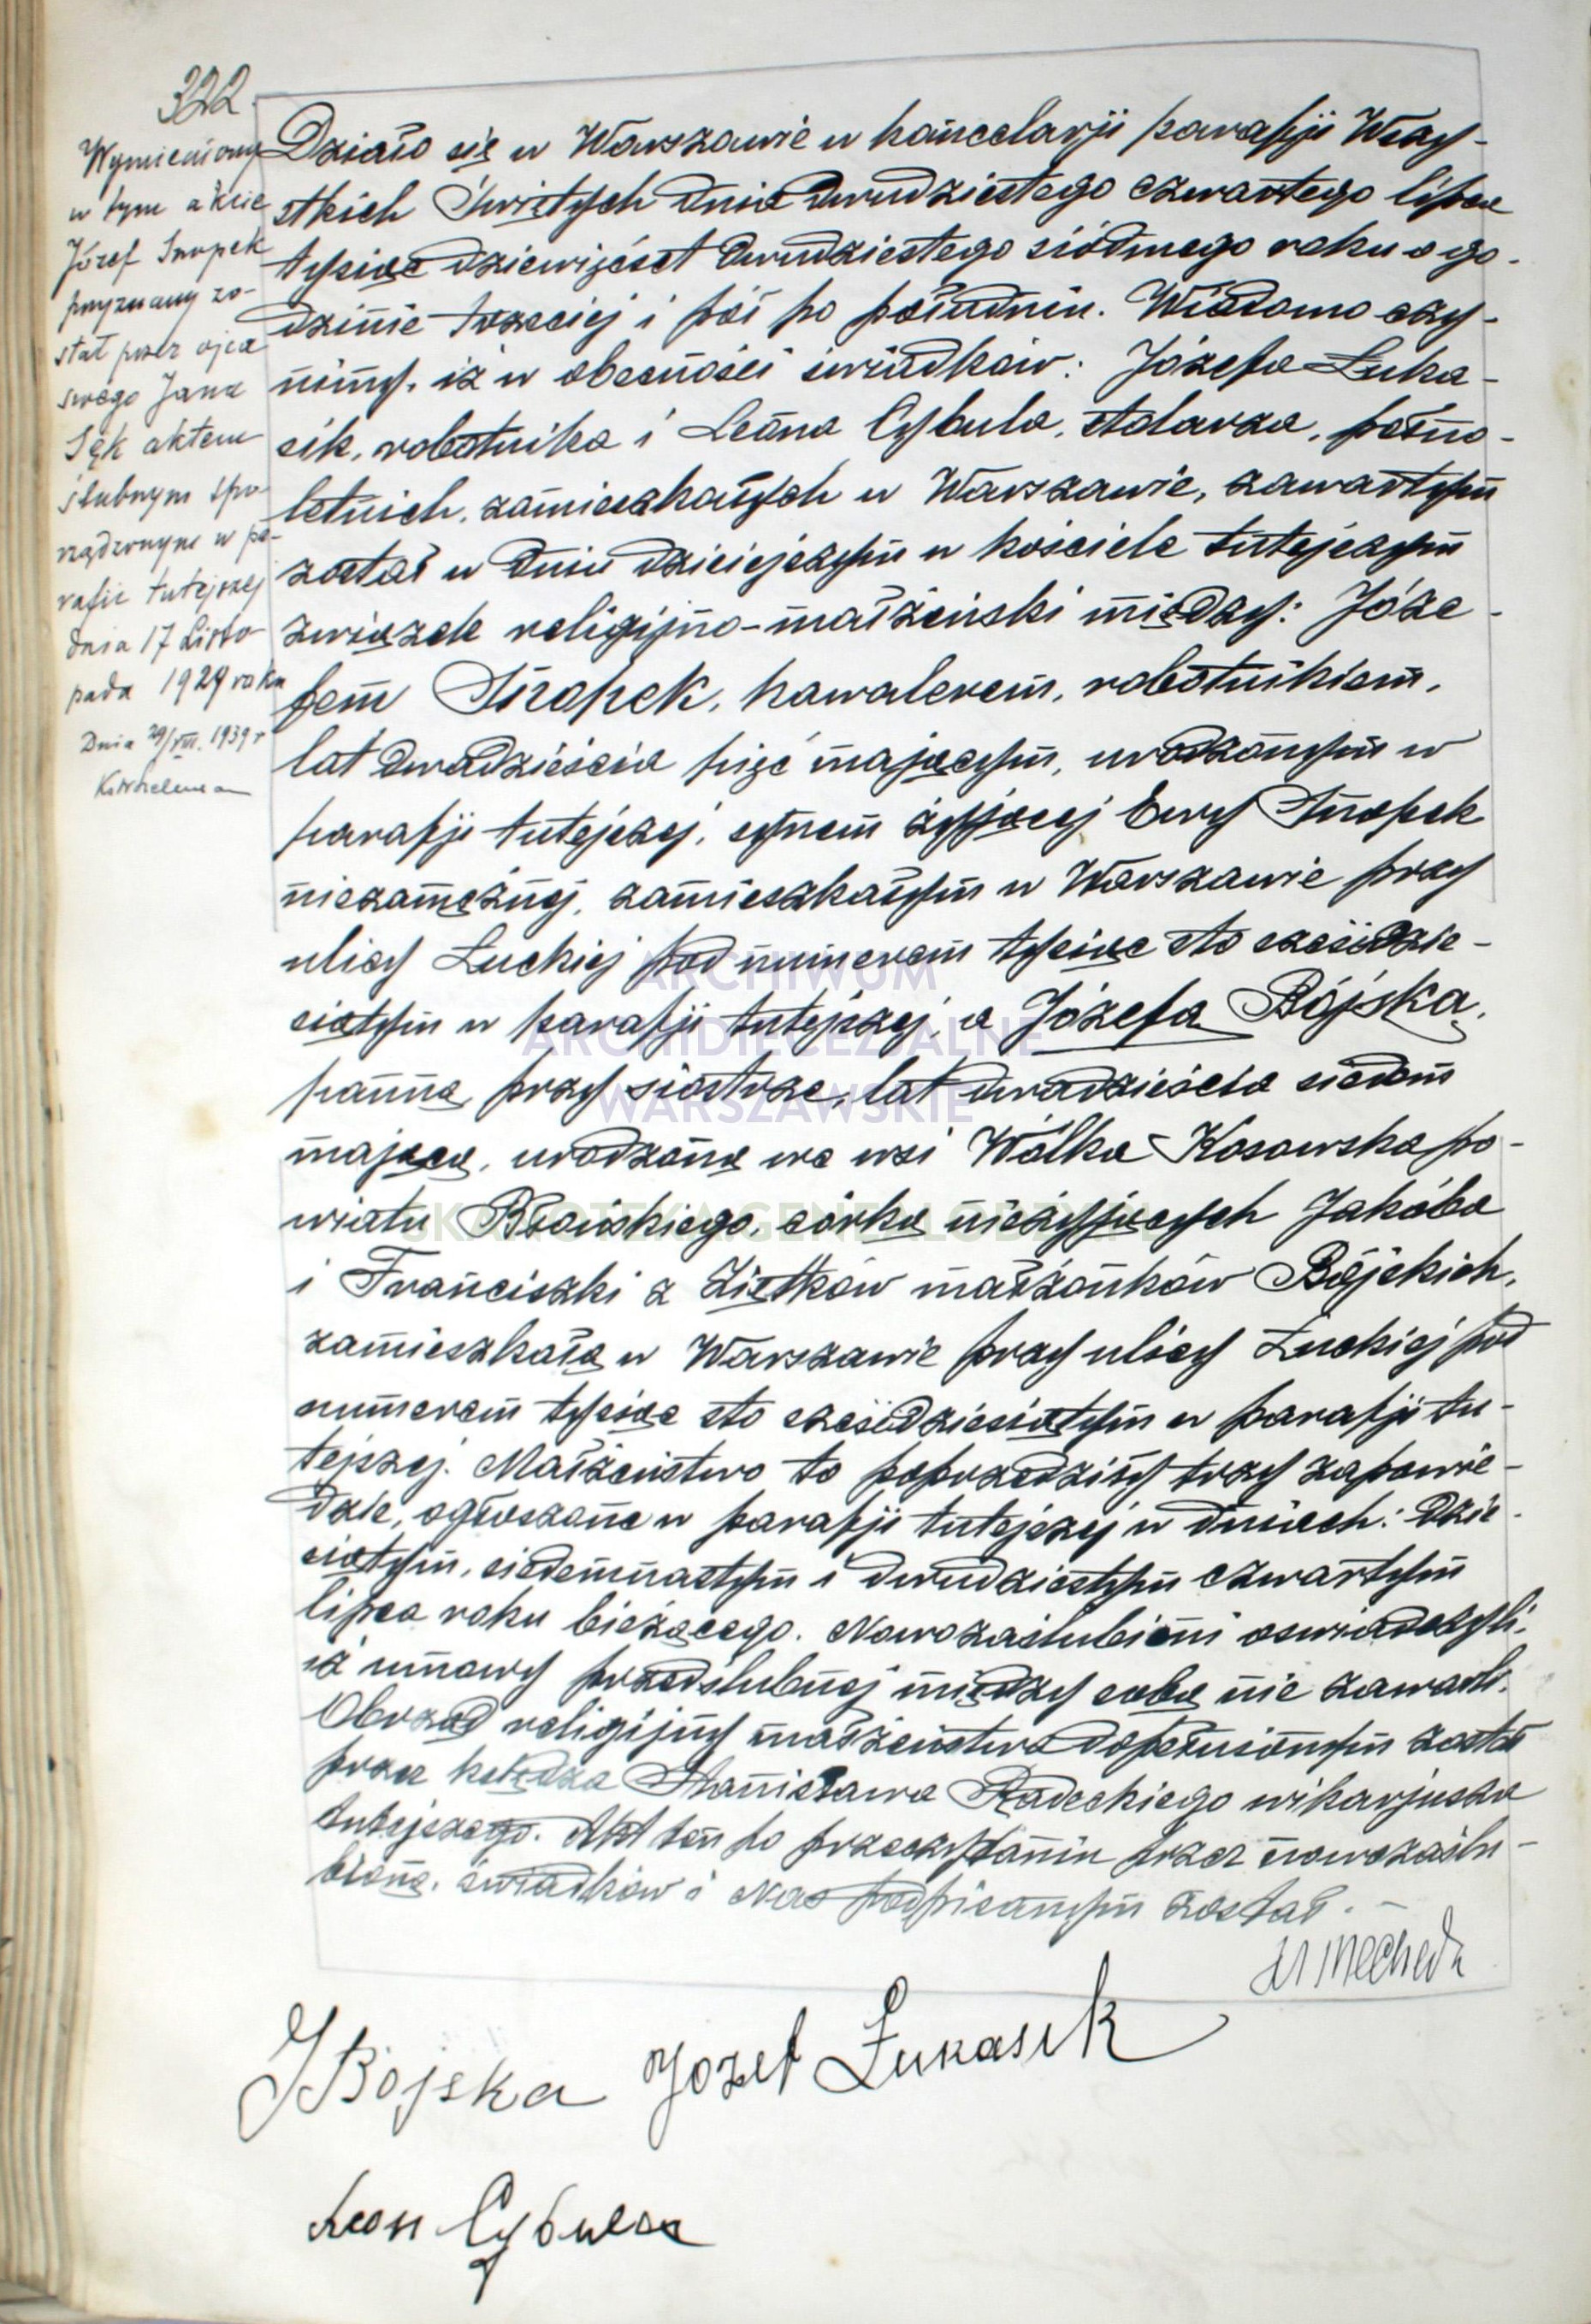 322
Wymieniony
w tym akcie
Józef Snopek
przyznany zo-
stał przez ojca
swego Jana
Sęk aktem
ślubnym spo-
rządzonym w pa-
rafii tutejszej
dnia 17 Listo-
pada 1929 roku
Dnia 29/VII. 1939 r
Działo się w Warszawie w kancelarji parafji Wszy-
stkich Świętych dnia dwudziestego czwartego lipca
tysiąc dziewięćset dwudziestego siódmego roku o go-
dzinie trzeciej i pół po południu. Wiadomo czy-
nimy, iż w obecności świadków: Józefa Łuka-
sik, robotnika i Leona Cybula, stolarza, pełno-
letnich, zamieszkałych w Warszawie, zawartym
został w dniu dzisiejszym w kościele tutejszym
związek religijno-małżeński między: Józe-
fem Snopek, kawalerem, robotnikiem,
lat dwadzieścia pięć mającym, urodzonym w
parafji tutejszej, synem żyjącej Ewy Snopek
niezamężnej, zamieszkałym w Warszawie przy
ulicy Łuckiej pod numerem tysiąc sto sześćdzie-
siątym w parafji tutejszej, a Józefą Bójską,
panną, przy siostrze, lat dwadzieścia siedem
mającą, urodzoną we wsi Wólka Kosowska po-
wiatu Błońskiego, córką nieżyjących Jakóba
i Franciszki z Ziętków małżonków Bójskich,
zamieszkałą w Warszawie przy ulicy Łuckiej pod
numerem tysiąc sto sześćdziesiątym w parafji tu-
tejszej. Małżeństwo to poprzedziły trzy zapowie-
dzie, ogłoszone w parafji tutejszej w dniach: dzie-
siątym, siedemnastym i dwudziestym czwartym
lipca roku bieżącego. Nowozaślubieni oświadczyli,
iż umowy przedślubnej między sobą nie zawarli.
Obrząd religijny małżeństwa dopełnionym został
przez księdza Stanisława Radeckiego wikarjusza
tutejszego. Akt ten po przeczytaniu przez nowozaślu-
bioną, świadków i Nas podpisanym został. -
JBojska Jozef Łukasik
Leon Cybula
ARCHIWUM
ARCHIDIECEZJALNE
WARSZAWSKIE